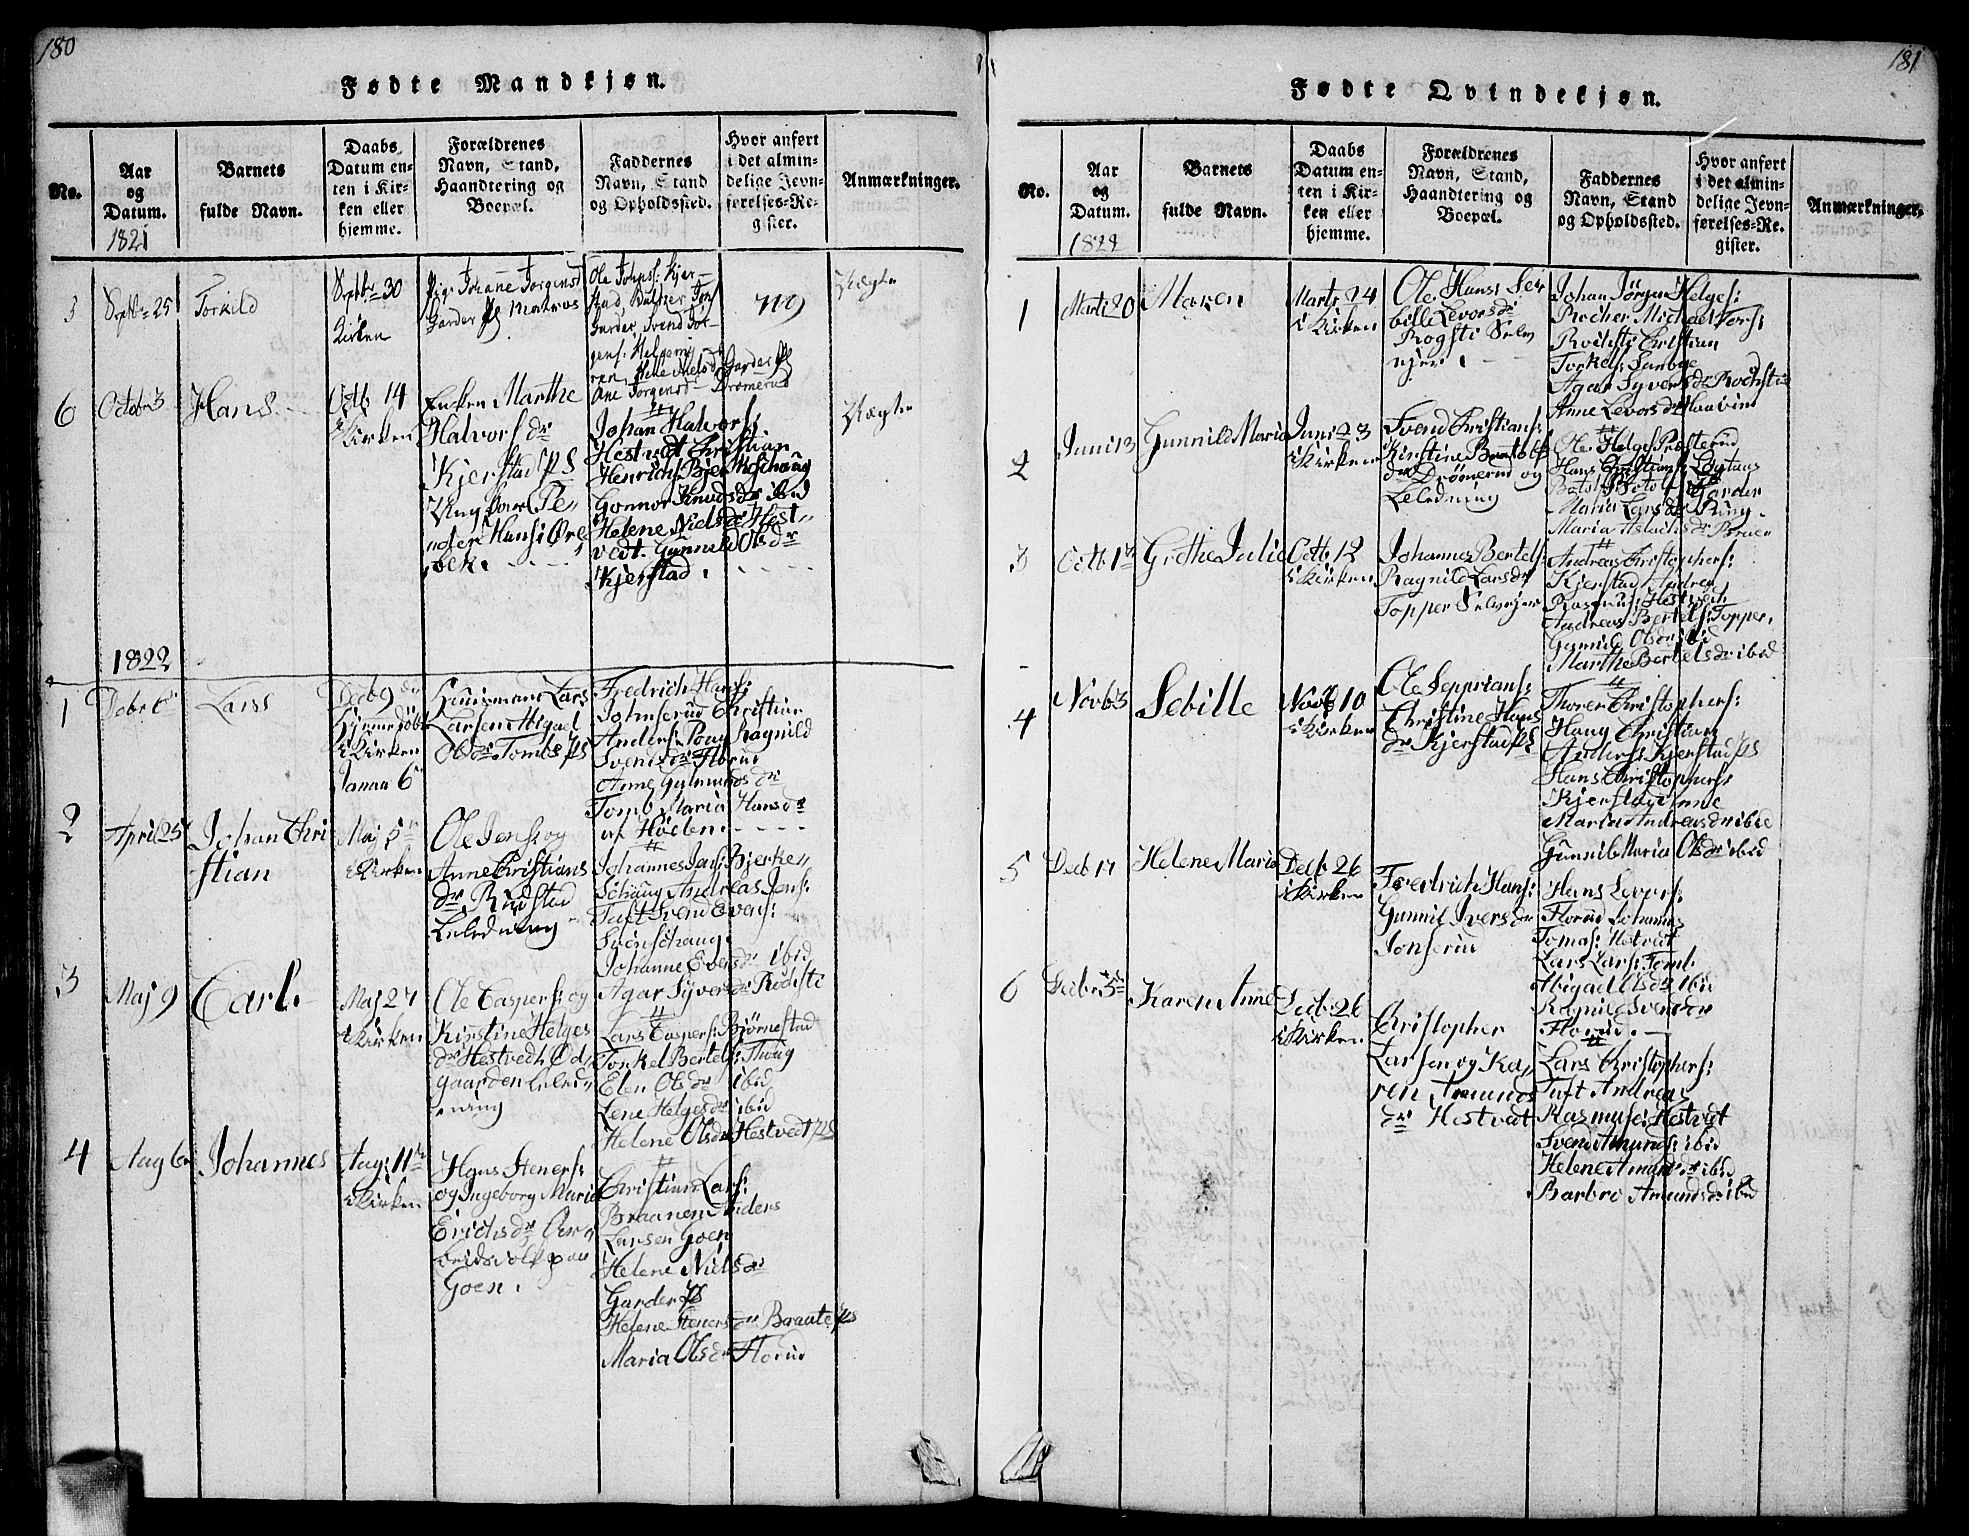 180
Fødte Mandkjøn.
No.
Aar
og
Datum.
1821
Barnets
fulde Navn.
Daabs
Datum en-
ten i Kir-
ken eller
hjemme.
Forældrenes
Navn, Stand,
Haandtering og
Boepæl.
Faddernes
Navn, Stand
og Opholdssted.
Hvor anført
i det almin-
delige Jevn-
førelses-Re-
gister.
Anmærkninger.
Septbr 25
Torkild
Septbr 30
Kirken
Pige Johanne Jorgensd
Garder
Ole Johns: Kjer-
stad
Garder, Svend Jor-
gens:
Ane Jorgensd Drømerud
Uægte
6
Octob 3
Hans
Octb 14
i Kirken
Enken Marthe
Halvors dr
Kjerstad PS
Ungkarl Pe-
der Hans: Øre
bek.
Johan Halvors:
Hestvedt Christian
Henrichs: Bjerkeschaug
Gonnor Knuds dr ibid
Helene Niels dr Hest-
vedt. Gunnild Ols dr
Kjerstad.
Uægte
1822
1
Decbr 6
Lars
Decb 9
Hjemmedöbt
i Kirken
Janua 6
Huusmann Lars
Larsen Abigael
Ols dr Tombs PS
Fredrich Hans:
Johnserud Christian
Anders: Poug Ragnild
Svends dr Florud
Anne Gulmunds dr
Tomb Maria Hans dr
Höelen.
2
April 25
Johan Chri
stian
Maj 5
i Kirken
Ole Jens: og
Anne Christians
dr Rudstad
Leilednng
Johannes Jans: Bjerke-
Schaug Andreas Jens:
Tuft Svend Evens:
Johanne Evers dr ibid
Agar Syvers dr Rödsti
3
Maj 9
Carl.
Maj 27
i Kirken
Ole Caspers: og
Kirstine Helges
dr Hestvedt Öd-
gaarden Leiled-
ning
Lars Caspers: Björnestad
Torkel Bertels: Thoug
Elen Ols dr ibid
Lene Helges dr ibid
Helene Ols dr Hestvedt PS
4
Aug 6
Johannes
Aug: 11
i Kirken
Hans Steners:
og Ingeborg Maria
Erichs dr Ar-
beidsfolk paa
Goen.
Christian Lars:
Braanen Anders
Larsen Goen
Helene Niels dr
Garder PS
Helene Steners dr Braate PS
Maria Ols dr Florud
181
Fødte Qvindekjøn.
No.
Aar
og
Datum.
1822
Barnets
fulde Navn.
Daabs
Datum en-
ten i Kir-
ken eller
hjemme.
Forældrenes
Navn, Stand,
Haandtering og
Boepæl.
Faddernes
Navn, Stand
og Opholdssted.
Hvor anført
i det almin-
delige Jevn-
førelses-Re-
gister.
Anmærkninger.
1
Marti 20
Maren
Marti 24
i Kirken
Ole Hans: Se
bille Levors dr
Rogsti Selv
ejer
Johan Jörgen Helges:
Michael Tors:
Rödsti Christian
Torkels: Sanboe
Agar Syvers dr Rödstie
Anne Levors dr Haavim
2
Juni 13
Gunnild Maria
Juni 23
i Kirken
Svend Christians:
Kirstine Botolfs
dr Drömerud og
Leiledning
Ole Helges: Presterud
Hans Christians:
Botolf Botolfs: Garder
Maria Lars dr Pung
Maria Aslachs dr
3
Octb 1
Grethe Julie
Octb 12
i Kirken
Johannes Bertels:
Ragnild Lars dr
Topper Selvejer
Andreas Christophers:
Kjerstad Andrea
Rasmus: Hestvedt
Andreas Bertels: Topper.
Gunnild Ols dr ibid
Marthe Bertels dr ibid
4
Novb 3
Sebille
Novb 10
i Kirken
Ole Seprians:
Christine Hans
dr Kjerstad PS
Thorer Christophers:
Haug Christian
Anders: Kjerstad PS
Hans Christophers:
Kjerstad Anne
Maria Andreas dr ibid
Gunnil Maria Ols dr ibid
5
Decb 17
Helene Maria
Decb 26
i Kirken
Fredrich Hans:
Gunnil Ivers dr
Jonserud
Hans Levors:
Florud Johannes
Tomas: Hestvedt
Lars Lars: Tomb
Abigael Ols dr ibid
Ragnild Svends dr
Florud.
6
Decbr
Karen Anne
Decb: 26
i Kirken
Christopher
Larsen og Ka-
ren Amunds
dr Hestvedt
Lars Christophers:
Tuft Andreas
Rasmus: Hestvedt
Svend Amunds: ibid
Helene Amunds dr ibid
Barbro Amunds dr ibid